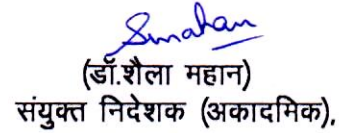 Smahan
(डॉ.शैला महान)
संयुक्त निदेशक (अकादमिक),